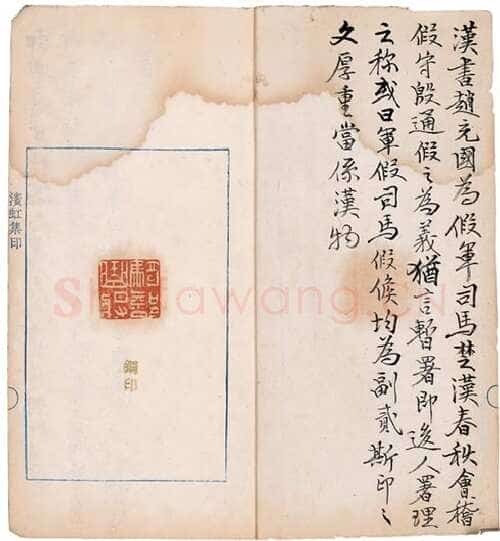 漢書趙充國為假軍司馬楚漢春秋會稽
假守殷通假之為義猶言暫署即人署理
之称或曰軍假司馬假候均為副貳斯印之
文厚重當係漢物
銅印
濱虹集印
Shufawang.CN